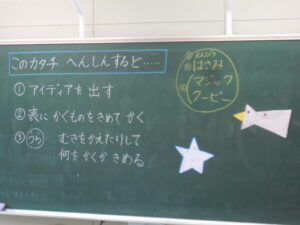 このカタチ へんしんすると……
① アイディアを 出す
② 表に かくものをきめて かく
③ うら むきをかえたりして
何を かくか きめる
はさみ
マジック
クーピー